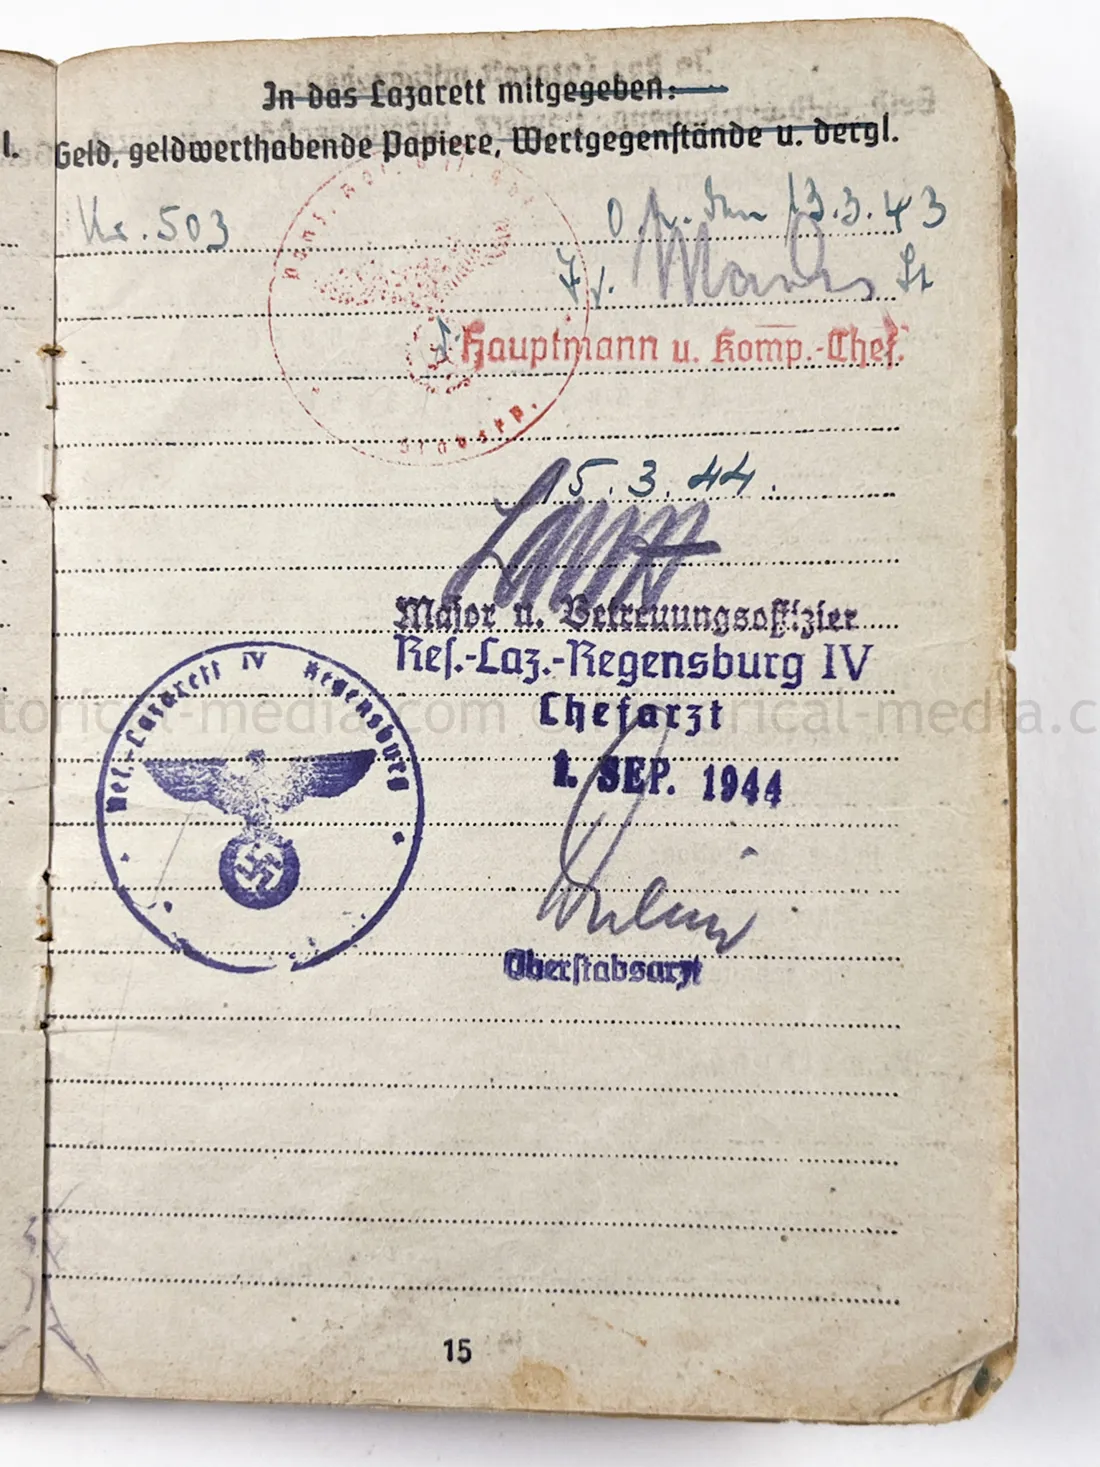 In das Lazarett mitgegeben:
Geld, geldwerthabende Papiere, Wertgegenstände u. dergl.
l.
Nr. 503
O. U. den 13.3.43
Hauptmann u. Komp.-Chef.
15.3.44.
Major u. Betreuungsoffizier
Res.-Laz.-Regensburg IV
Chefarzt
1. SEP. 1944
Res.-Lazarett IV Regensburg
Oberstabsarzt
15